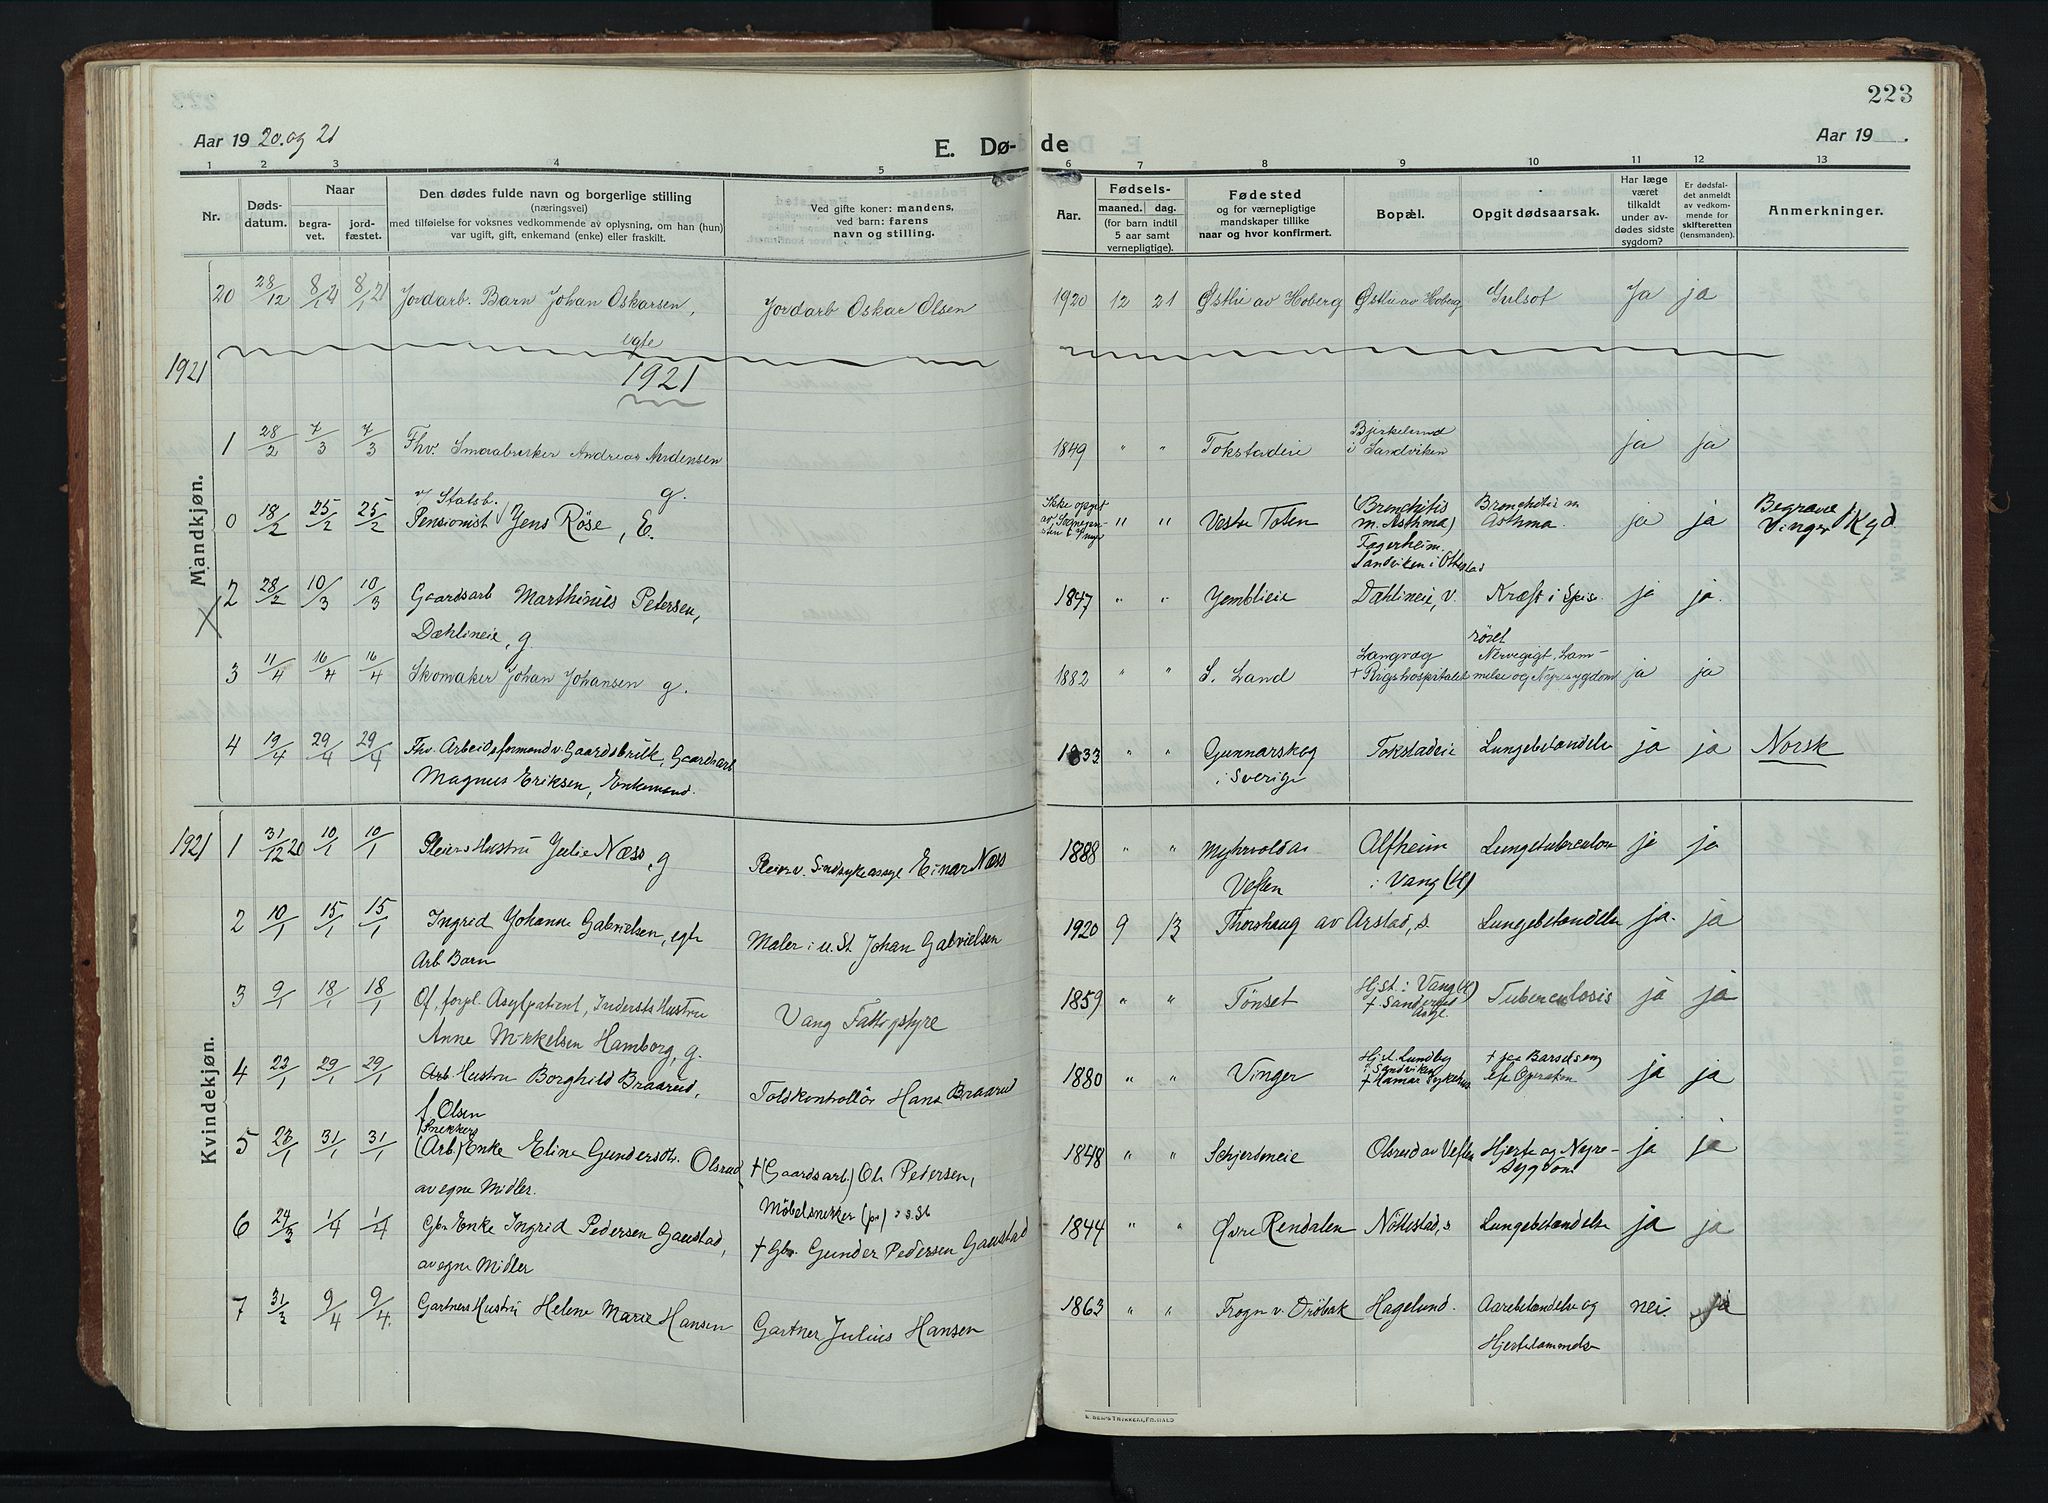 223
Aar 19 20. og 21
E. Dø-
de
Aar 19 .
1 2 3 4 5 6 7 8 9 10 11 12 13
Nr.
Døds-
datum.
Naar
begra-
vet.
jord-
fæstet.
Den dødes fulde navn og borgerlige stilling
(næringsvei)
med tilføielse for voksnes vedkommende av oplysning, om han (hun)
var ugift, gift, enkemand (enke) eller fraskilt.
Ved gifte koner: mandens,
ved barn: farens
navn og stilling.
Aar.
Fødsels-
maaned. dag.
(for barn indtil
5 aar samt
vernepligtige).
Fødested
og for værnepligtige
mandskaper tillike
naar og hvor konfirmert.
Bopæl.
Opgit dødsaarsak.
Har læge
været
tilkaldt
under av-
dødes sidste
sygdom?
Er dødsfal-
det anmeldt
av vedkom-
mende for
skifteretten
(lensmanden).
Anmerkninger.
20 28/12 8/1 21 8/1 21 Jordarb. Barn Johan Oskarsen, Jordarb Oskar Olsen 1920 12 21 Østlie av Hoberg Østlie av Hoberg Gulsot Ja ja
egte
1921
1921
Mandkjøn.
1 28/2 7/3 7/3 Fhv. Smaabruker Andreas Andensen 1849 " " Tokstadeie Bjerkelund
i Sandviken ja ja
g.
v/ Statsb.
0 18/2 25/2 25/2 Pensionist Jens Röse, E. Ikke opgit " " Vestre Toten (Bronchitis
m. Asthma) Bronchitis m
Asthma. ja ja Begravet
Vinger Kgd.
Fagerheim
Sandviken i Ottestad
2 28/2 10/3 10/3 Gaardsarb Marthinus Petersen, 1847 " " Jemblieie Dæhlineie, v. Kræft i Spise- ja ja.
Dæhlineie, g. röret
3 11/4 16/4 16/4 Skomaker Johan Johansen g. 1882 " " S. Land Langvæg
+ Rigshospitalet Nervegigt, Lam-
melse og Nyresygdom ja ja
4 19/4 29/4 29/4 Fhv. Arbeidsformand v. Gaardsbruk, Gaardsarb 1833 " " Gunnarskog
i Sverige Tokstadeie Lungebetændelse ja ja Norsk
Magnus Eriksen, Enkemand.
1921
Kvindekjøn.
1 31/12 20 10/1 10/1 Pleiers Hustru Julie Næss, g Pleier v. Sindsykeasyl Einar Næss 1888 " " Myhrvold av
Vefsen Alfheim
i Vang (H) Lungetuberculose ja ja
2 10/1 15/1 15/1 Ingrid Johanne Gabrielsen, egte
Arb Barn Maler i u. St Johan Gabrielsen 1920 9 13 Thorshaug av Arstad, s. Lungebetændelse ja. ja
3 9/1 18/1 18/1 Of. forpl. Asylpatient, Indersts Hustru
Anne Mikkelsen Hamborg, g. Vang Fattigstyre 1859 " " Tönset Hjst. i Vang (H)
+ Sanderud
Asyl. Tuberculosis ja ja
4 23/1 29/1 29/1 Arb. Hustru Borghild Braarud,
f. Olsen Toldkontrollör Hans Braarud 1880 " " Vinger Hjst. Lundby
i Sandviken
+ Hamar Sykehus + paa Barselseng
Operation ja ja
Snekkers
5 23/1 31/1 31/1 (Arb) Enke Eline Gundersdtr. Olsrud,
av egne Midler. + (Gaardsarb.) Ole Pedersen,
Möbelsnekker 1848 " " Schjerdeneie Olsrud av Vefsen Hjerte og Nyre-
sygdom ja ja
6 24/3 1/4 1/4 Gbr Enke Ingrid Pedersen Gaustad,
av egne Midler + Gbr. Gunder Pedersen Gaustad 1844 " " Øvre Rendalen Nöttestad, s Lungebetændelse ja ja
7 31/3 9/4 9/4. Gartners Hustru Helene Marie Hansen Gartner Julius Hansen 1863 " " Frogn v. Dröbak Hagelund. Aarebetændelse og
Hjertelammelse nei ja